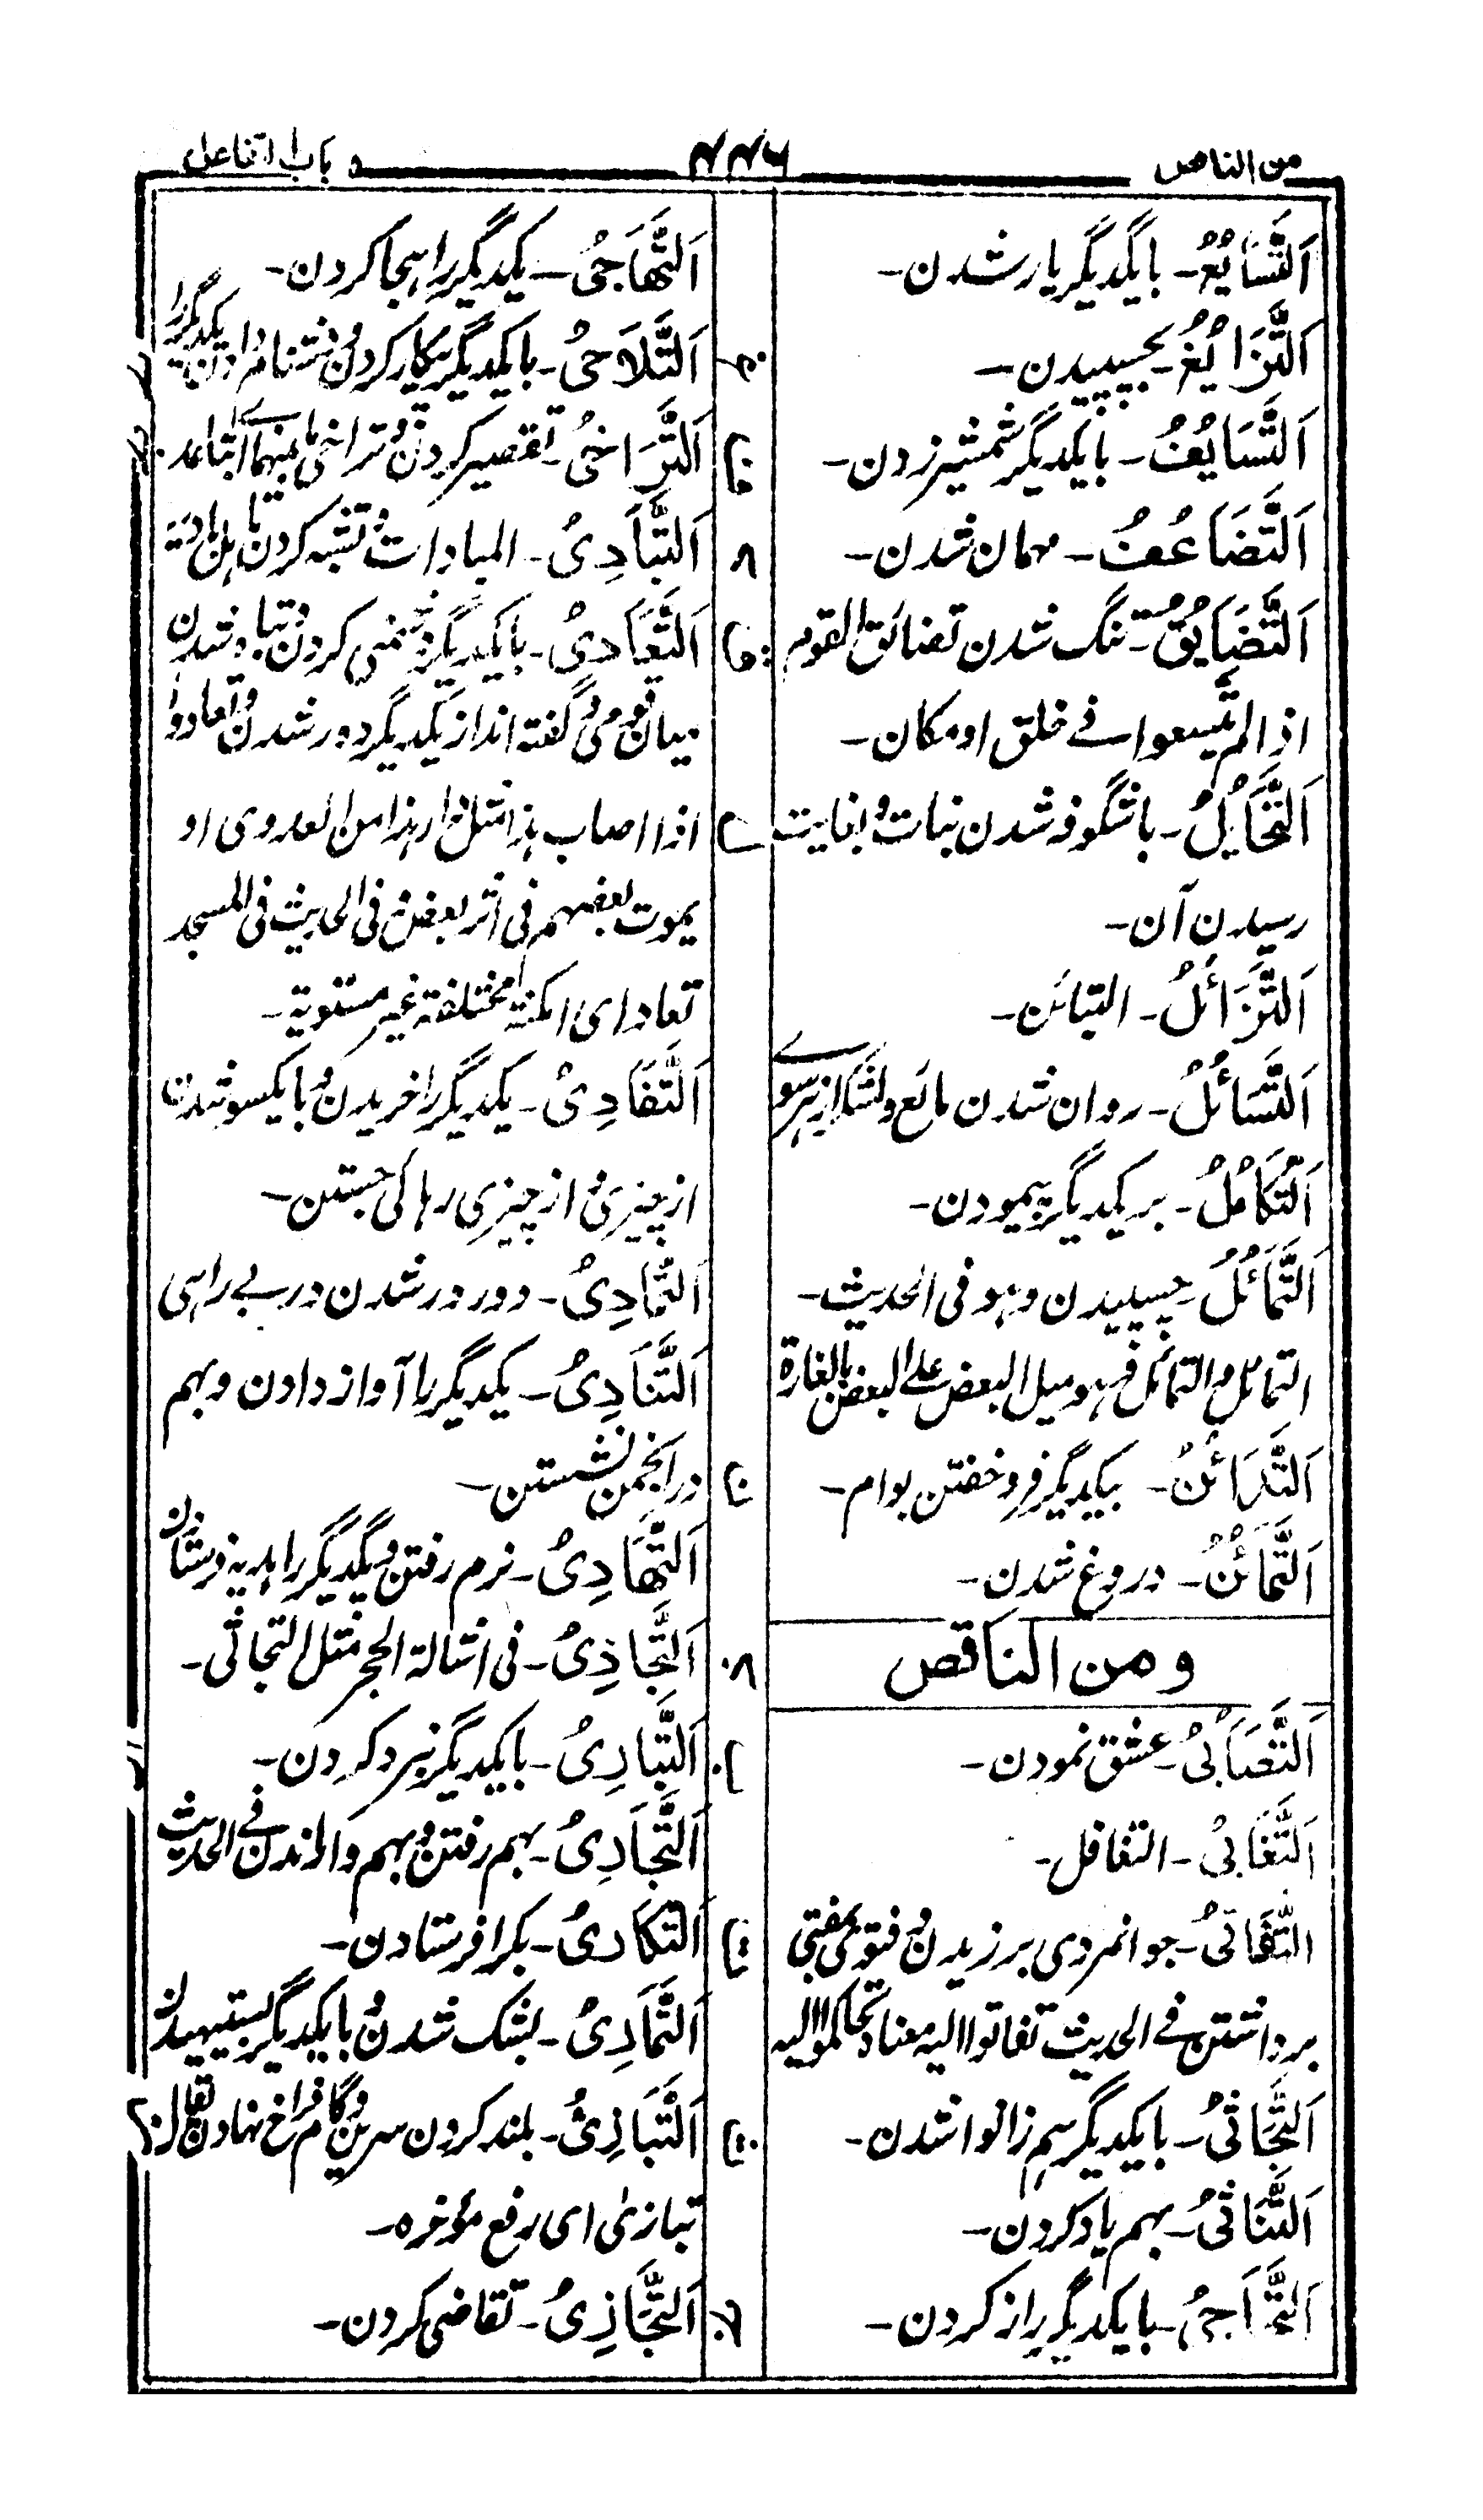 من الناقص
۴۴۶
باب التفاعل
اَلتَّشَايُعُ۔ بایکدیگر یار شدن۔
اَلتَّزَايُغُ۔ بچسپیدن۔
اَلتَّسَايُفُ۔ بایکدیگر شمشیر زدن۔
اَلتَّضَاعُفُ۔ مهمان شدن۔
اَلتَّضَايُقُ۔ تنگ شدن تضائق القوم
اذا لم یتسعوا فے خلق او مکان۔
اَلتَّخَايُلُ۔ باشگوفه شدن نبات و بغایت
رسیدن آن۔
اَلتَّزَائُلُ۔ التبائن۔
اَلتَّسَائُلُ۔ روان شدن مائع ولشکر از هر سوے
اَلتَّكَامُلُ۔ بر یکدیگر پیمودن۔
اَلتَّمَائُلُ۔ چسپیدن وهو فی الحدیث۔
التمائل والتمائل فهو میل البعض علی البعض بالغارة
اَلتَّدَائُنُ۔ بیکدیگر فروختن بوام۔
اَلتَّمَائُنُ۔ دروغ شدن۔
ومن الناقص
اَلتَّصَابِیُ۔ عشق نمودن۔
اَلتَّغَابِیُ۔ التغافل۔
اَلتَّفَاتِیُ۔ جوانمردی برزیدن و فتوی بمفتی
برداشتن فے الحدیث تفاتوا الیه معناه تحاکموا الیه
اَلتَّجَاثِیُ۔ بایکدیگر سم زانوا شدن۔
اَلتَّنَاثِیُ۔ بهم یاد کردن۔
اَلتَّنَاجِیُ۔ بایکدیگر راز کردن۔
اَلتَّهَاجِیُ۔ یکدیگر را هجا کردن۔
اَلتَّلَاحِیُ۔ بایکدیگر پیکار کردن و دشنام دادن یکدیگر را
اَلتَّرَاخِیُ۔ تقصیر کردن و تراخی ما بینهما ای تباعد
اَلتَّبَادِیُ۔ المبادات و تشبه کردن باهل بادیة
اَلتَّعَادِیُ۔ بایکدیگر دشمنی کردن و تباه شدن
میان قومی و گفته اند از یکدیگر دور شدن و تعادوا
اذا اصاب هذا مثل داء هذا من العدوی او
یموت بعضهم فی اثر بعض و فی الحدیث فی المسجد
تعاد ای امکنة مختلفة غیر مستویة۔
اَلتَّفَادِیُ۔ یکدیگر را خریدن و بایکسو شدن
از چیزی و از چیزی رهائی جستن۔
اَلتَّمَادِیُ۔ دور در شدن در بے راهی
اَلتَّنَادِیُ۔ یکدیگر را آواز دادن و بهم
در انجمن نشستن۔
اَلتَّهَادِیُ۔ نرم رفتن و یکدیگر را هدیه فرستادن
اَلتَّجَاذِیُ۔ فی اشالة الحجر مثل التجاثی۔
اَلتَّبَارِیُ۔ بایکدیگر نبرد کردن۔
اَلتَّجَارِیُ۔ بهم رفتن و بهم وا راندن فے الحدیث
اَلتَّكَارِیُ۔ بکرا فرستادن۔
اَلتَّمَارِیُ۔ بشک شدن و بایکدیگر بستیهیدن
اَلتَّبَازِیُ۔ بلند کردن سرین و گام فراخ نهادن یقال
تبازی ای رفع مؤخره۔
اَلتَّجَازِیُ۔ تقاضی کردن۔